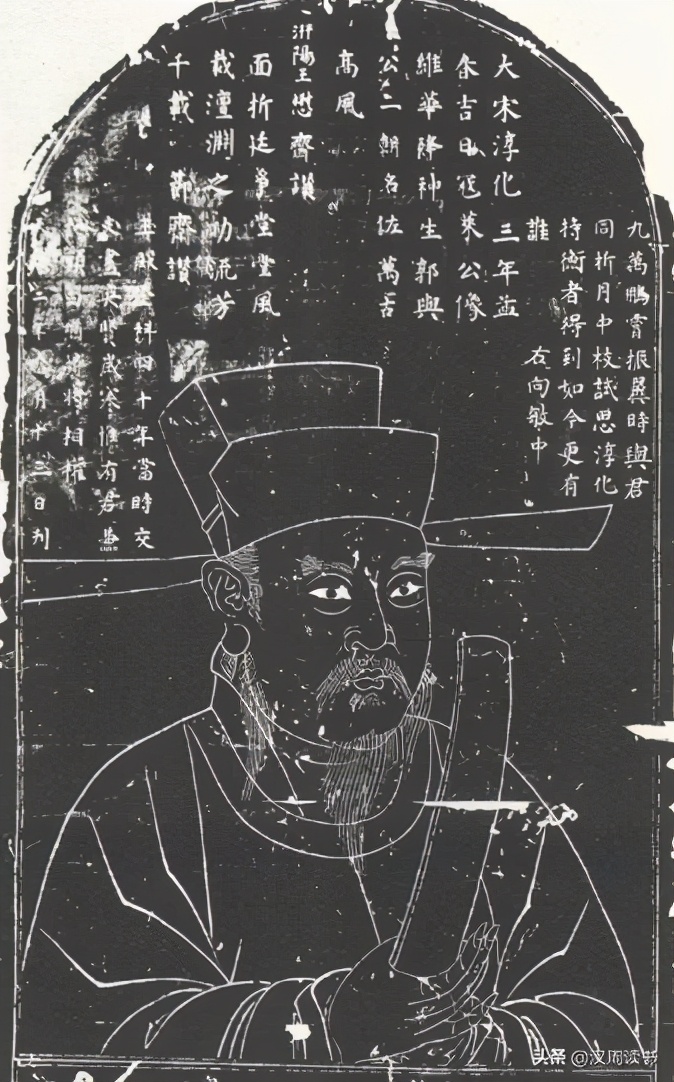 九萬鵬霄振翼時與君
同折月中枝試思淳化
持衡者得到如今更有
誰
右向敏中
大宋淳化三年孟
冬吉日寇萊公像
維華降神生郭與
公二朝名佐萬古
高風
汧陽王懋齋讚
面折廷爭堂堂風
裁澶淵之功流芳
千載 節齋讚
科四十年當時交
盡英賢咸惟有君
頭白將相權
三年月十三日刋
头条 @汉周读书